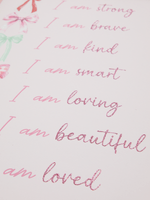 I am strong
I am brave
I am kind
I am smart
I am loving
I am beautiful
am loved